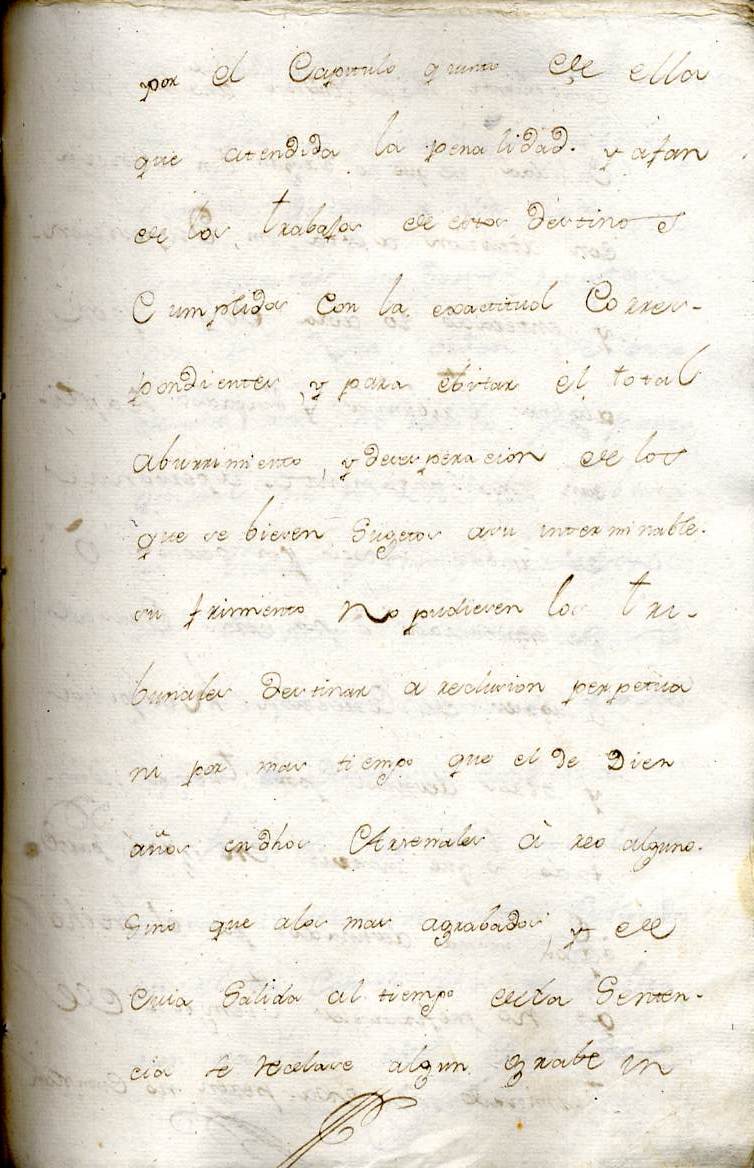 por el Capitulo quinto de ella
que atendida la penalidad. y afan
de los trabajos de estos destinos
Cumplidos Con la exactitud Corres-
pondientes, y para ebitar el total
aburrimiento y desesperacion de los
que se biesen Sugetos asu interminable.
su frimiento No pudiesen los tri-
bunales destinar a reclusion perpetua
ni por mas tiempo que el de Dien
años en dhos Arsenales à reo alguno.
Sino que alos mas agrabados y de
Cuia Salida al tiempo dela Senten-
cia se recelase algun grabe in